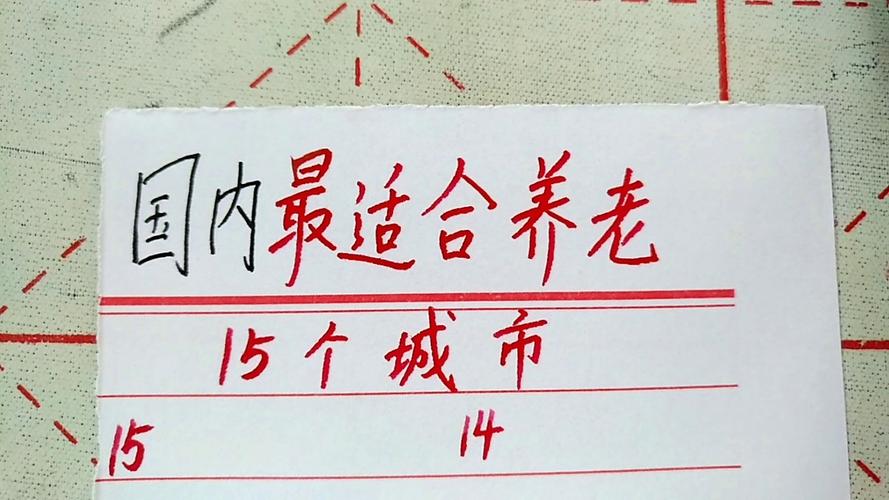 国内最适合养老
15个城市
15 14